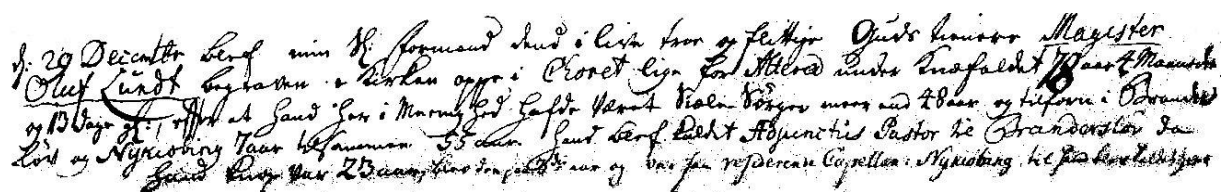 d: 29 Decembr blef min Sl: formand dend i live troe og flittige Guds tienere Magister
Oluf Lundt begraven i Kirken oppe i Choret lige for Alteret under Knæfaldet aar 4 Maaneder
og 13 dage gl:, efter at hand her i Meenighed hafde Været Siæle Sørger meer end 48 aar og tilforn i Brander
Løv og Nykiøbing 7 aar tilsammen 55 aar. hand blef kaldet Adjunctus Pastor til Branderslöv da
hand kun var 23 aar, blev aar og var saa resiterend Capellan i Nykiøbing til